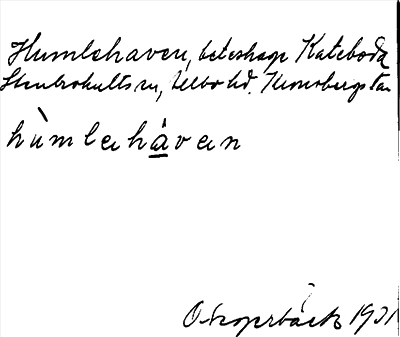 Humlehaven, beteshage Kateboda
Stenbrohults sn, Allbo hd. Kronobergs län
hùmlehàven
O. Kopsbäck 1931